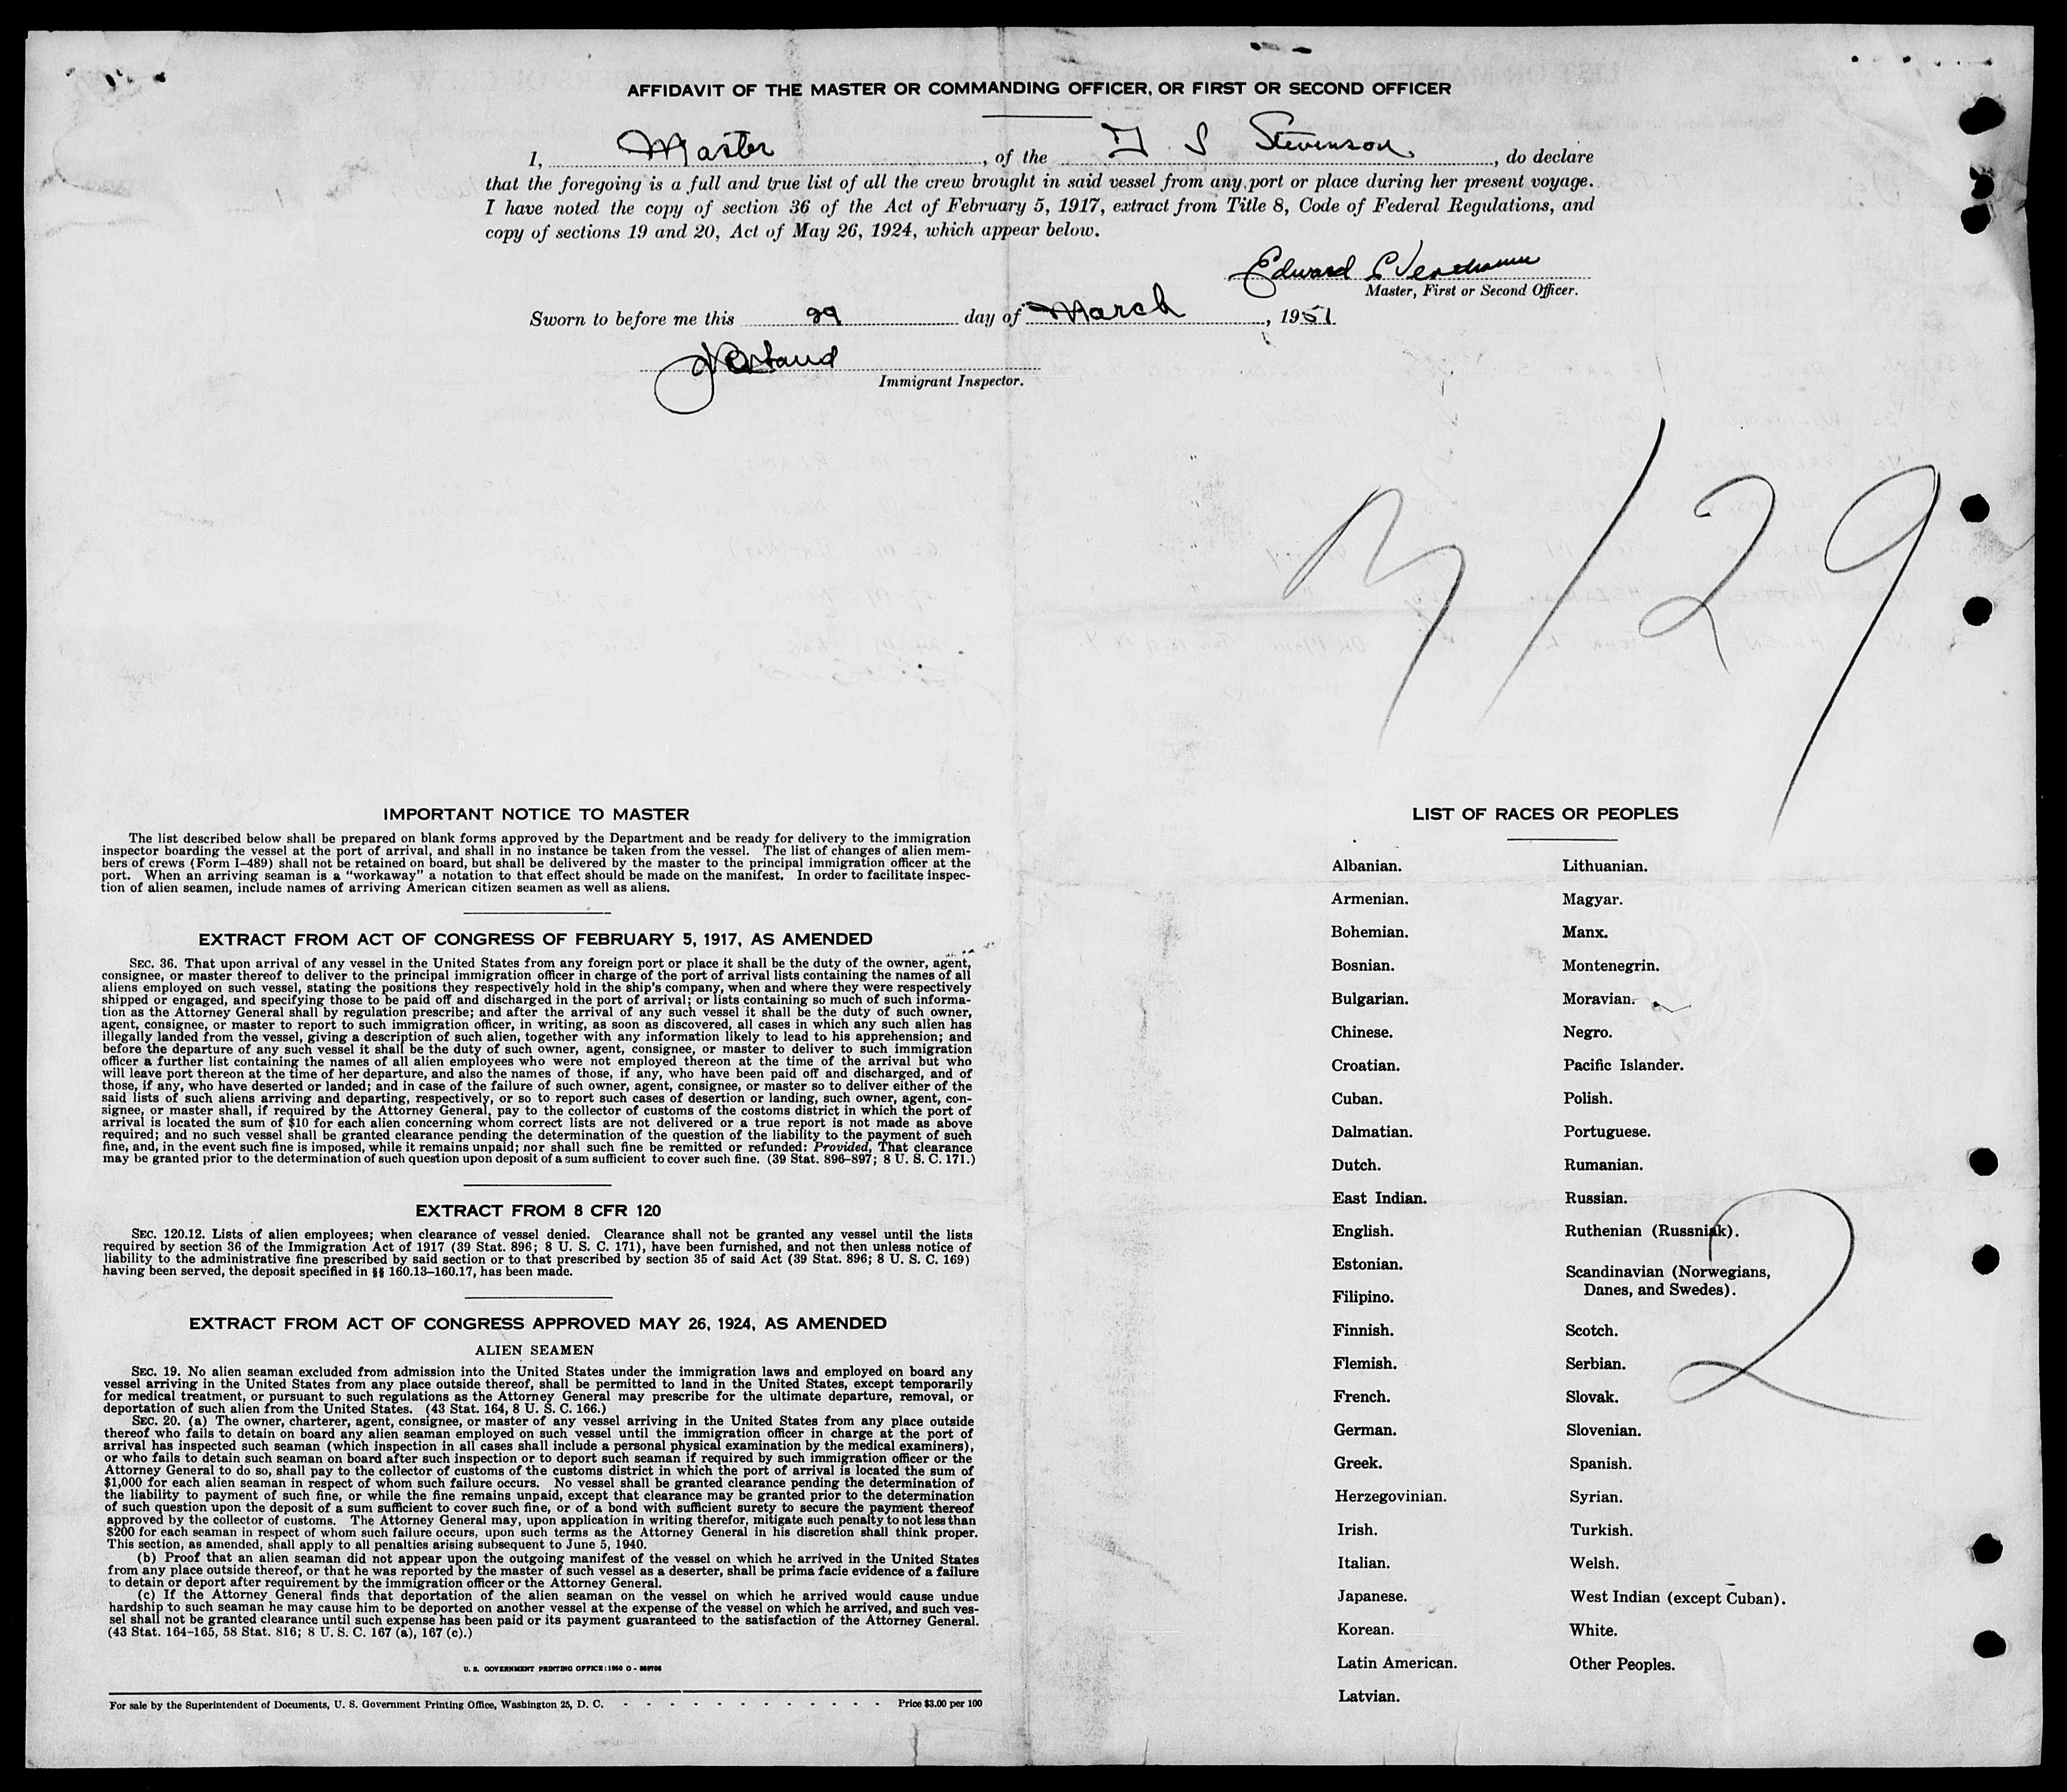 AFFIDAVIT OF THE MASTER OR COMMANDING OFFICER, OR FIRST OR SECOND OFFICER
I, Master, of the S Stevenson, do declare
that the foregoing is a full and true list of all the crew brought in said vessel from any port or place during her present voyage.
I have noted the copy of section 36 of the Act of February 5, 1917, extract from Title 8, Code of Federal Regulations, and
copy of sections 19 and 20, Act of May 26, 1924, which appear below.
Edward
Master, First or Second Officer.
Sworn to before me this 29 day of March, 1951
Immigrant Inspector.
3/29
IMPORTANT NOTICE TO MASTER
The list described below shall be prepared on blank forms approved by the Department and be ready for delivery to the immigration
inspector boarding the vessel at the port of arrival, and shall in no instance be taken from the vessel. The list of changes of alien mem-
bers of crews (Form I-489) shall not be retained on board, but shall be delivered by the master to the principal immigration officer at the
port. When an arriving seaman is a "workaway" a notation to that effect should be made on the manifest. In order to facilitate inspec-
tion of alien seamen, include names of arriving American citizen seamen as well as aliens.
EXTRACT FROM ACT OF CONGRESS OF FEBRUARY 5, 1917, AS AMENDED
SEC. 36. That upon arrival of any vessel in the United States from any foreign port or place it shall be the duty of the owner, agent,
consignee, or master thereof to deliver to the principal immigration officer in charge of the port of arrival lists containing the names of all
aliens employed on such vessel, stating the positions they respectively hold in the ship's company, when and where they were respectively
shipped or engaged, and specifying those to be paid off and discharged in the port of arrival; or lists containing so much of such informa-
tion as the Attorney General shall by regulation prescribe; and after the arrival of any such vessel it shall be the duty of such owner,
agent, consignee, or master to report to such immigration officer, in writing, as soon as discovered, all cases in which any such alien has
illegally landed from the vessel, giving a description of such alien, together with any information likely to lead to his apprehension; and
before the departure of any such vessel it shall be the duty of such owner, agent, consignee, or master to deliver to such immigration
officer a further list containing the names of all alien employees who were not employed thereon at the time of the arrival but who
will leave port thereon at the time of her departure, and also the names of those, if any, who have been paid off and discharged, and of
those, if any, who have deserted or landed; and in case of the failure of such owner, agent, consignee, or master so to deliver either of the
said lists of such aliens arriving and departing, respectively, or so to report such cases of desertion or landing, such owner, agent, con-
signee, or master shall, if required by the Attorney General, pay to the collector of customs of the costoms district in which the port of
arrival is located the sum of $10 for each alien concerning whom correct lists are not delivered or a true report is not made as above
required; and no such vessel shall be granted clearance pending the determination of the question of the liability to the payment of such
fine, and, in the event such fine is imposed, while it remains unpaid; nor shall such fine be remitted or refunded: Provided, That clearance
may be granted prior to the determination of such question upon deposit of a sum sufficient to cover such fine. (39 Stat. 896-897; 8 U. S. C. 171.)
EXTRACT FROM 8 CFR 120
SEC. 120.12. Lists of alien employees; when clearance of vessel denied. Clearance shall not be granted any vessel until the lists
required by section 36 of the Immigration Act of 1917 (39 Stat. 896; 8 U. S. C. 171), have been furnished, and not then unless notice of
liability to the administrative fine prescribed by said section or to that prescribed by section 35 of said Act (39 Stat. 896; 8 U. S. C. 169)
having been served, the deposit specified in §§ 160.13-160.17, has been made.
EXTRACT FROM ACT OF CONGRESS APPROVED MAY 26, 1924, AS AMENDED
ALIEN SEAMEN
SEC. 19. No alien seaman excluded from admission into the United States under the immigration laws and employed on board any
vessel arriving in the United States from any place outside thereof, shall be permitted to land in the United States, except temporarily
for medical treatment, or pursuant to such regulations as the Attorney General may prescribe for the ultimate departure, removal, or
deportation of such alien from the United States. (43 Stat. 164, 8 U. S. C. 166.)
SEC. 20. (a) The owner, charterer, agent, consignee, or master of any vessel arriving in the United States from any place outside
thereof who fails to detain on board any alien seaman employed on such vessel until the immigration officer in charge at the port of
arrival has inspected such seaman (which inspection in all cases shall include a personal physical examination by the medical examiners),
or who fails to detain such seaman on board after such inspection or to deport such seaman if required by such immigration officer or the
Attorney General to do so, shall pay to the collector of customs of the customs district in which the port of arrival is located the sum of
$1,000 for each alien seaman in respect of whom such failure occurs. No vessel shall be granted clearance pending the determination of
the liability to payment of such fine, or while the fine remains unpaid, except that clearance may be granted prior to the determination
of such question upon the deposit of a sum sufficient to cover such fine, or of a bond with sufficient surety to secure the payment thereof
approved by the collector of customs. The Attorney General may, upon application in writing therefor, mitigate such penalty to not less than
$200 for each seaman in respect of whom such failure occurs, upon such terms as the Attorney General in his discretion shall think proper.
This section, as amended, shall apply to all penalties arising subsequent to June 5, 1940.
(b) Proof that an alien seaman did not appear upon the outgoing manifest of the vessel on which he arrived in the United States
from any place outside thereof, or that he was reported by the master of such vessel as a deserter, shall be prima facie evidence of a failure
to detain or deport after requirement by the immigration officer or the Attorney General.
(c) If the Attorney General finds that deportation of the alien seaman on the vessel on which he arrived would cause undue
hardship to such seaman he may cause him to be deported on another vessel at the expense of the vessel on which he arrived, and such ves-
sel shall not be granted clearance until such expense has been paid or its payment guaranteed to the satisfaction of the Attorney General.
(43 Stat. 164-165, 58 Stat. 816; 8 U. S. C. 167 (a), 167 (c).)
U. S. GOVERNMENT PRINTING OFFICE: 1950 O -
For sale by the Superintendent of Documents, U. S. Government Printing Office, Washington 25, D. C. - - - - - - - - - - - - Price $3.00 per 100
LIST OF RACES OR PEOPLES
Albanian.
Armenian.
Bohemian.
Bosnian.
Bulgarian.
Chinese.
Croatian.
Cuban.
Dalmatian.
Dutch.
East Indian.
English.
Estonian.
Filipino.
Finnish.
Flemish.
French.
German.
Greek.
Herzegovinian.
Irish.
Italian.
Japanese.
Korean.
Latin American.
Latvian.
Lithuanian.
Magyar.
Manx.
Montenegrin.
Moravian.
Negro.
Pacific Islander.
Polish.
Portuguese.
Rumanian.
Russian.
Ruthenian (Russniak).
Scandinavian (Norwegians,
Danes, and Swedes).
Scotch.
Serbian.
Slovak.
Slovenian.
Spanish.
Syrian.
Turkish.
Welsh.
West Indian (except Cuban).
White.
Other Peoples.
2